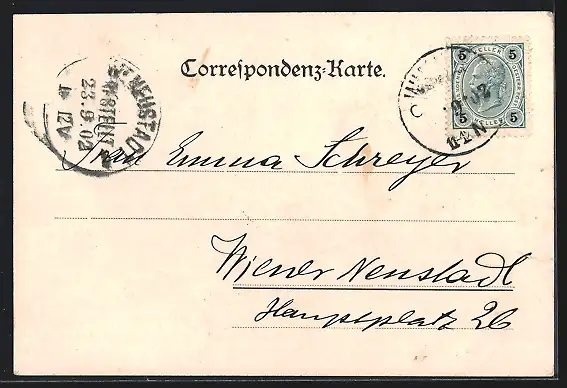 Correspondenz-Karte.
5 HELLER 5
5 HELLER 5
NEUSTADT
BESTELLT
23.9.02
Frau Emma Schreyer
Wiener Neustadt
Hauptplatz 26